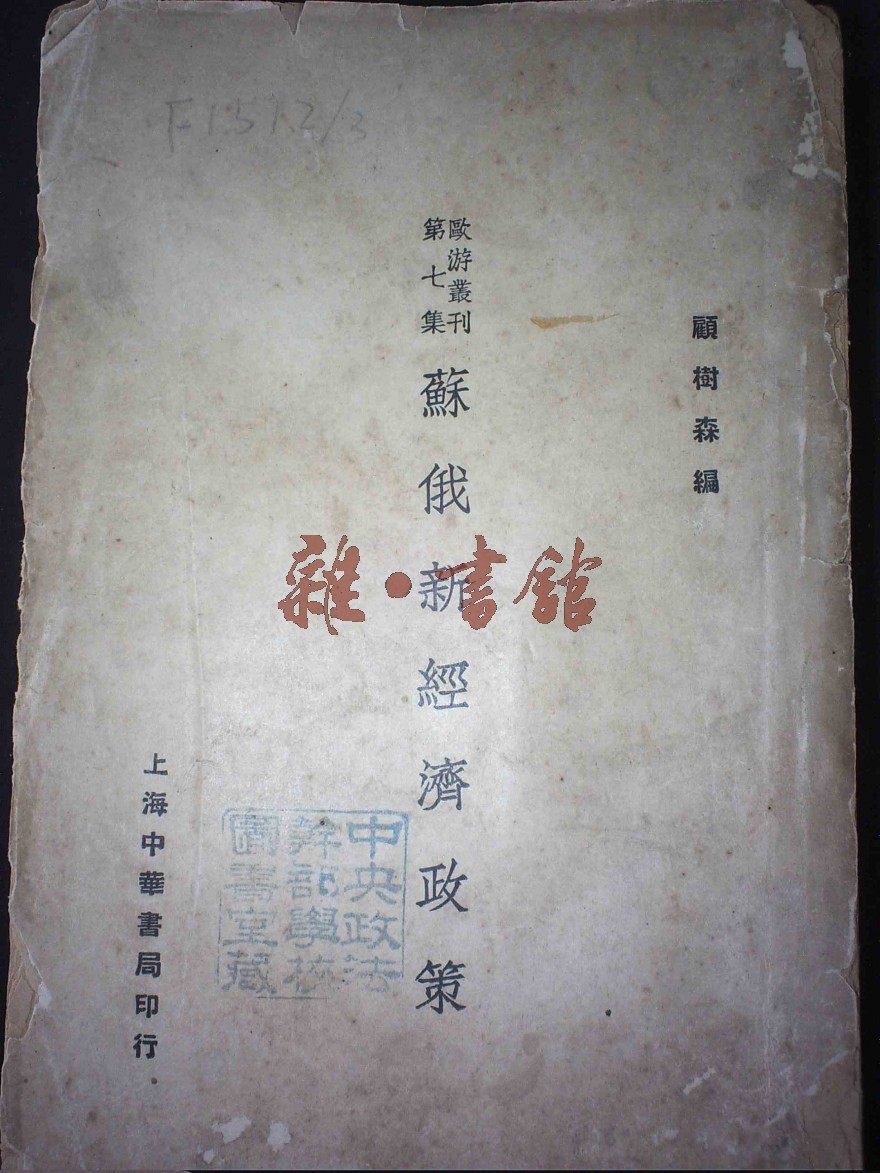 F151.2/3
顧樹森編
歐游叢刊
第七集
蘇俄新經濟政策
上海中華書局印行
中央政法
幹部學校
圖書室藏
雜·書館